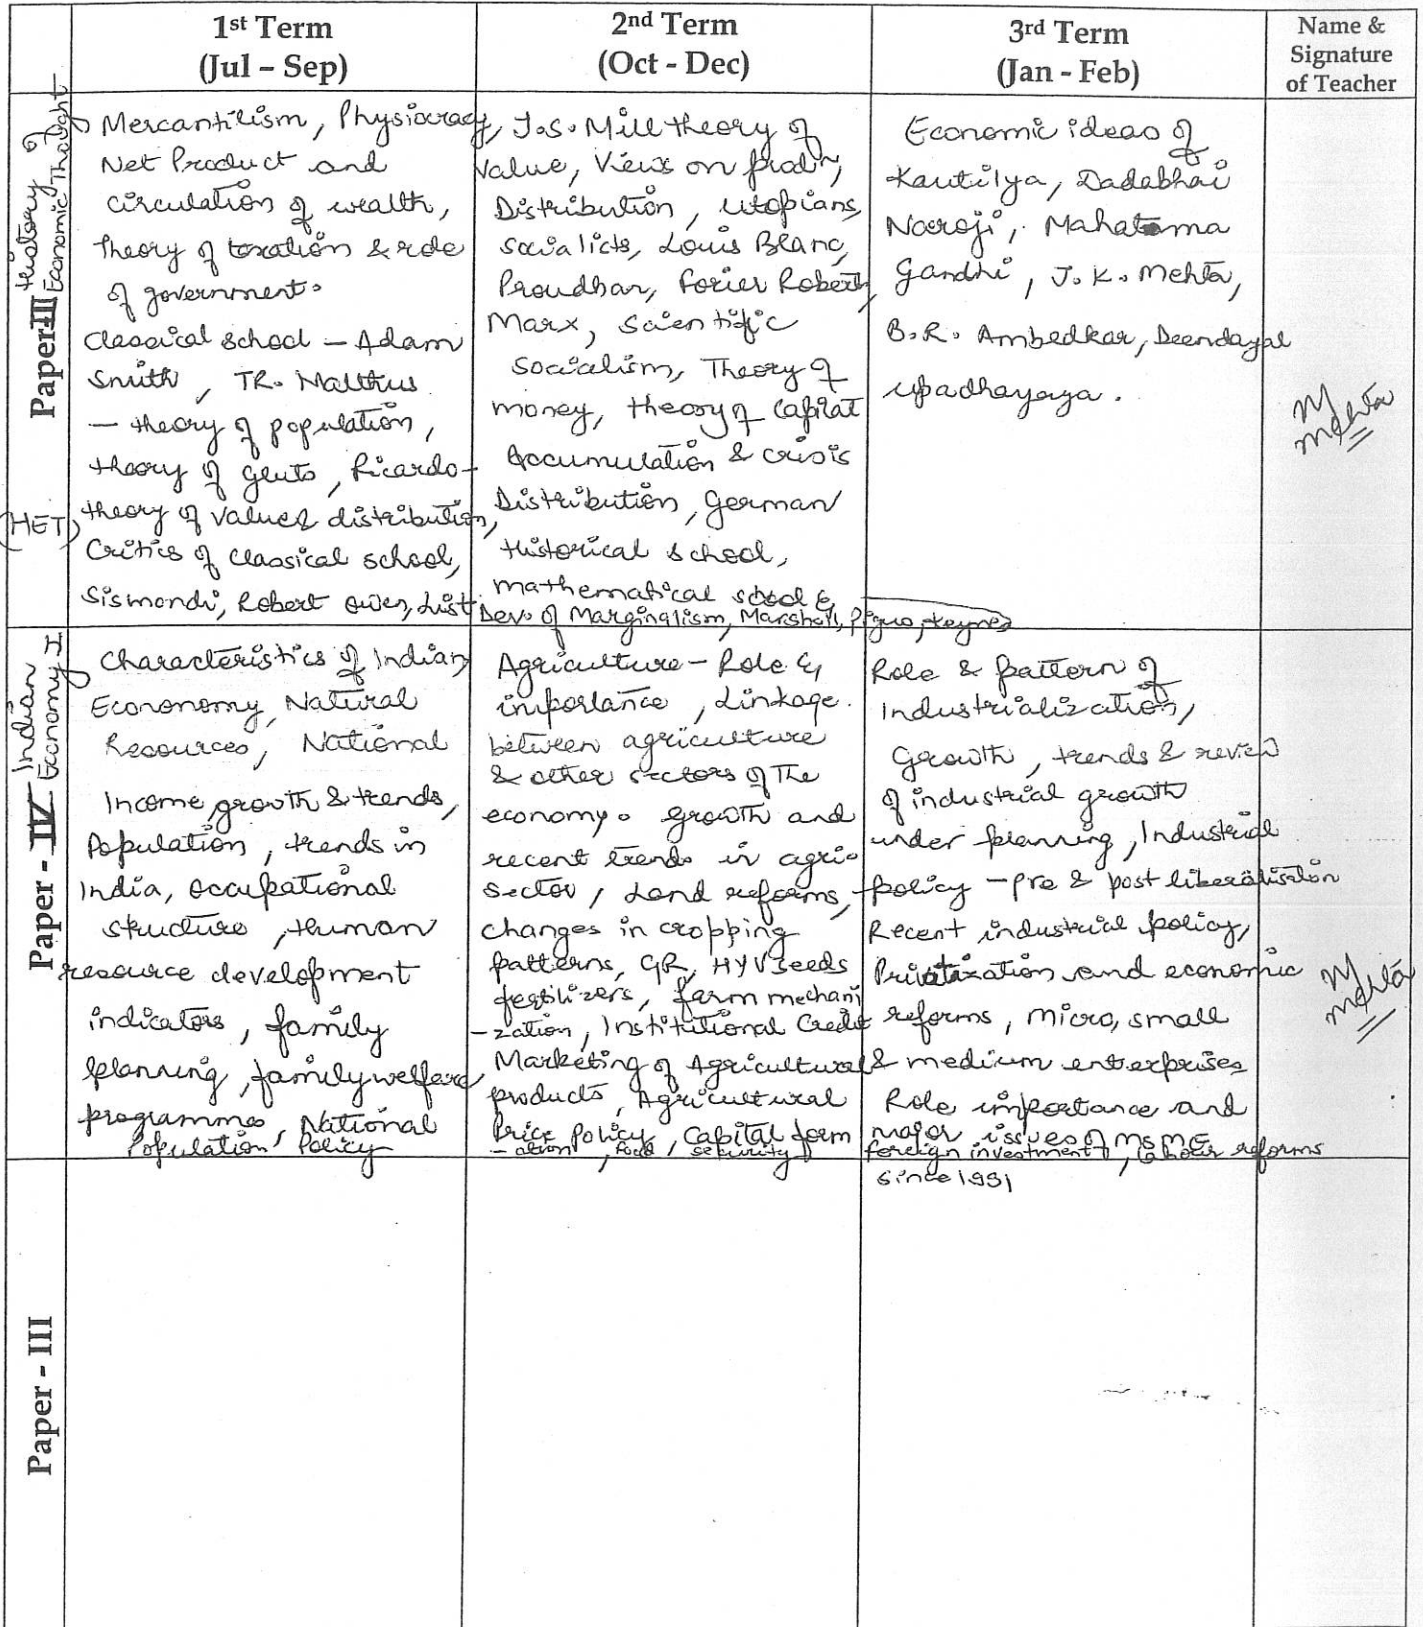 1st Term
(Jul – Sep)
2nd Term
(Oct - Dec)
3rd Term
(Jan - Feb)
Name &
Signature
of Teacher
Paper-III
History of
Economic Thought
(HET)
Mercantilism, Physiocracy,
Net Product and
circulation of wealth,
Theory of taxation & role
of government.
Classical school – Adam
Smith, TR. Malthus
– theory of population,
theory of gluts, Ricardo-
theory of value & distribution,
Critics of classical school,
Sismondi, Robert Owen, List
J.S. Mill theory of
value, Views on prodn,
Distribution, Utopians,
Socialists, Louis Blanc,
Proudhan, Forier Robert,
Marx, Scientific
Socialism, Theory of
money, theory of Capital
Accumulation & crisis
Distribution, German
Historical school,
mathematical school &
Dev. of Marginalism, Marshall, Piguo, Keynes
Economic ideas of
Kautilya, Dadabhai
Naoroji, Mahatama
Gandhi, J.K. Mehta,
B.R. Ambedkar, Deendayal
upadhayaya.
M
Mehta
Paper - IV
Indian
Economy I
Characteristics of Indian
Econonomy, Natural
Resources, National
Income, growth & trends,
Population, trends in
India, occupational
structure, Human
resource development
indicators, family
planning, family welfare
programmes, National
Population Policy
Agriculture – Role &
importance, Linkage
between agriculture
& other sectors of the
economy. Growth and
recent trends in agri.
sector, Land reforms,
changes in cropping
patterns, GR, HYV Seeds
fertilizers, farm mechani
-zation, Institutional Credit
Marketing of Agricultural
products, Agricultural
Price Policy, Capital form
-ation, Food security
Role & pattern of
Industrialization,
Growth, trends & review
of industrial growth
under planning, Industrial
policy – pre & post liberalisation
Recent industrial policy,
Privatization and economic
reforms, micro, small
& medium enterprises
Role importance and
major issues of MSME
foreign investment, labour reforms
since 1991
M
Mehta
Paper - III